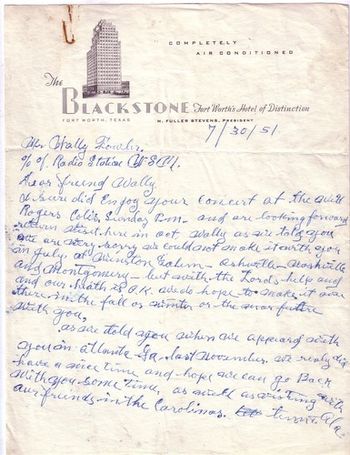 COMPLETELY
AIR CONDITIONED
The
BLACKSTONE Fort Worth's Hotel of Distinction
FORT WORTH, TEXAS M. FULLER STEVENS, PRESIDENT
7/30/51
Mr. Wally Fowler.
% of Radio Station W.S.M.
Dear friend Wally
I sure did Enjoy your Concert at the Will
Rogers Col. Sunday P.m. and are looking forward
return here in oct Wally as we told you
we are very sorry we could not make it with you
in July at Winston Salem - Ashville - Nashville
and Montgomery - but with the Lord's help and
and our health is O.K. we do hope to make it over
there in the fall or winter or the near future
with you,
as we told you when we appeard with
you in atlanta Ga. last November. we realy did
have a nice time and hope we can go Back
with you some time, as well as with
our friends in the Carolinas.